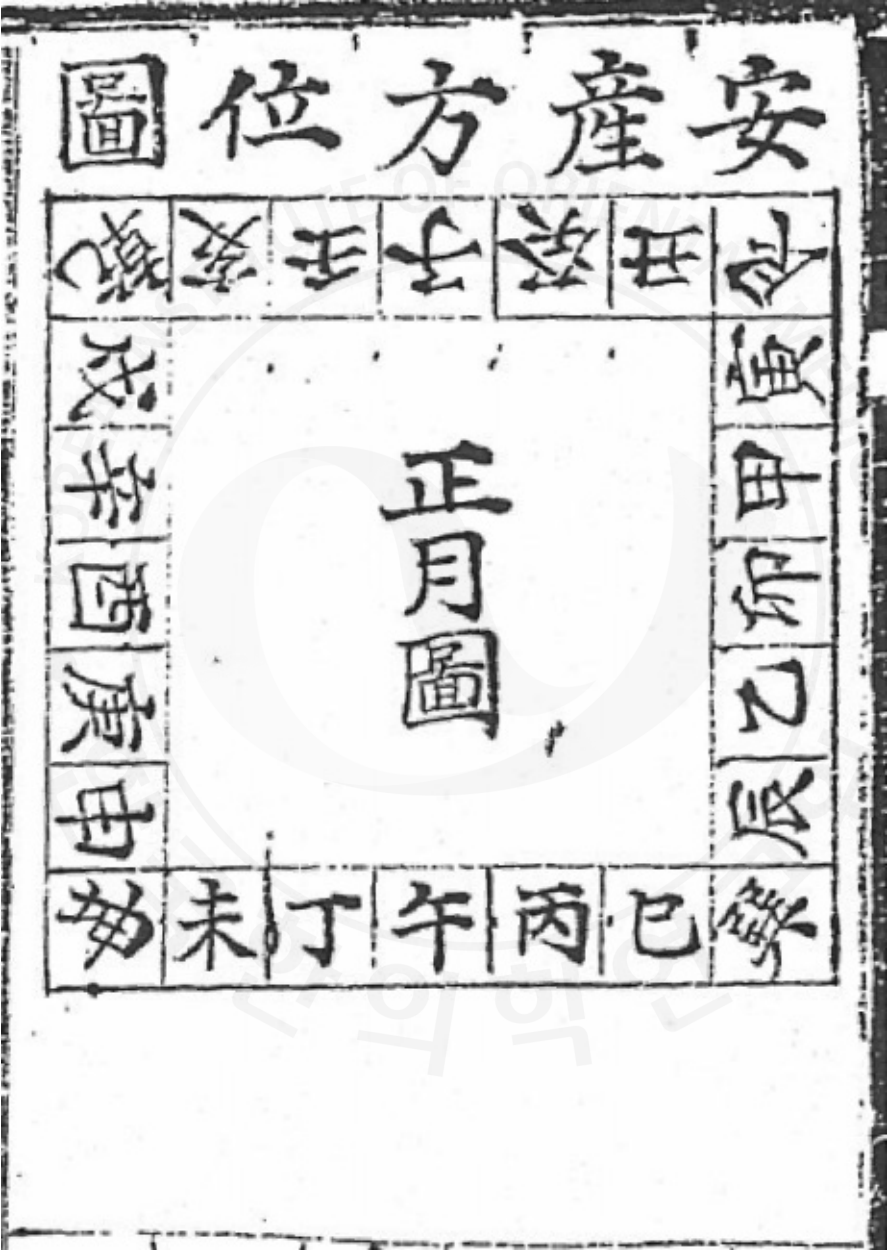 安産方位圖
艮丑癸子壬亥乾
寅甲卯乙辰
巽巳丙午丁未坤
申庚酉辛戌
正月圖